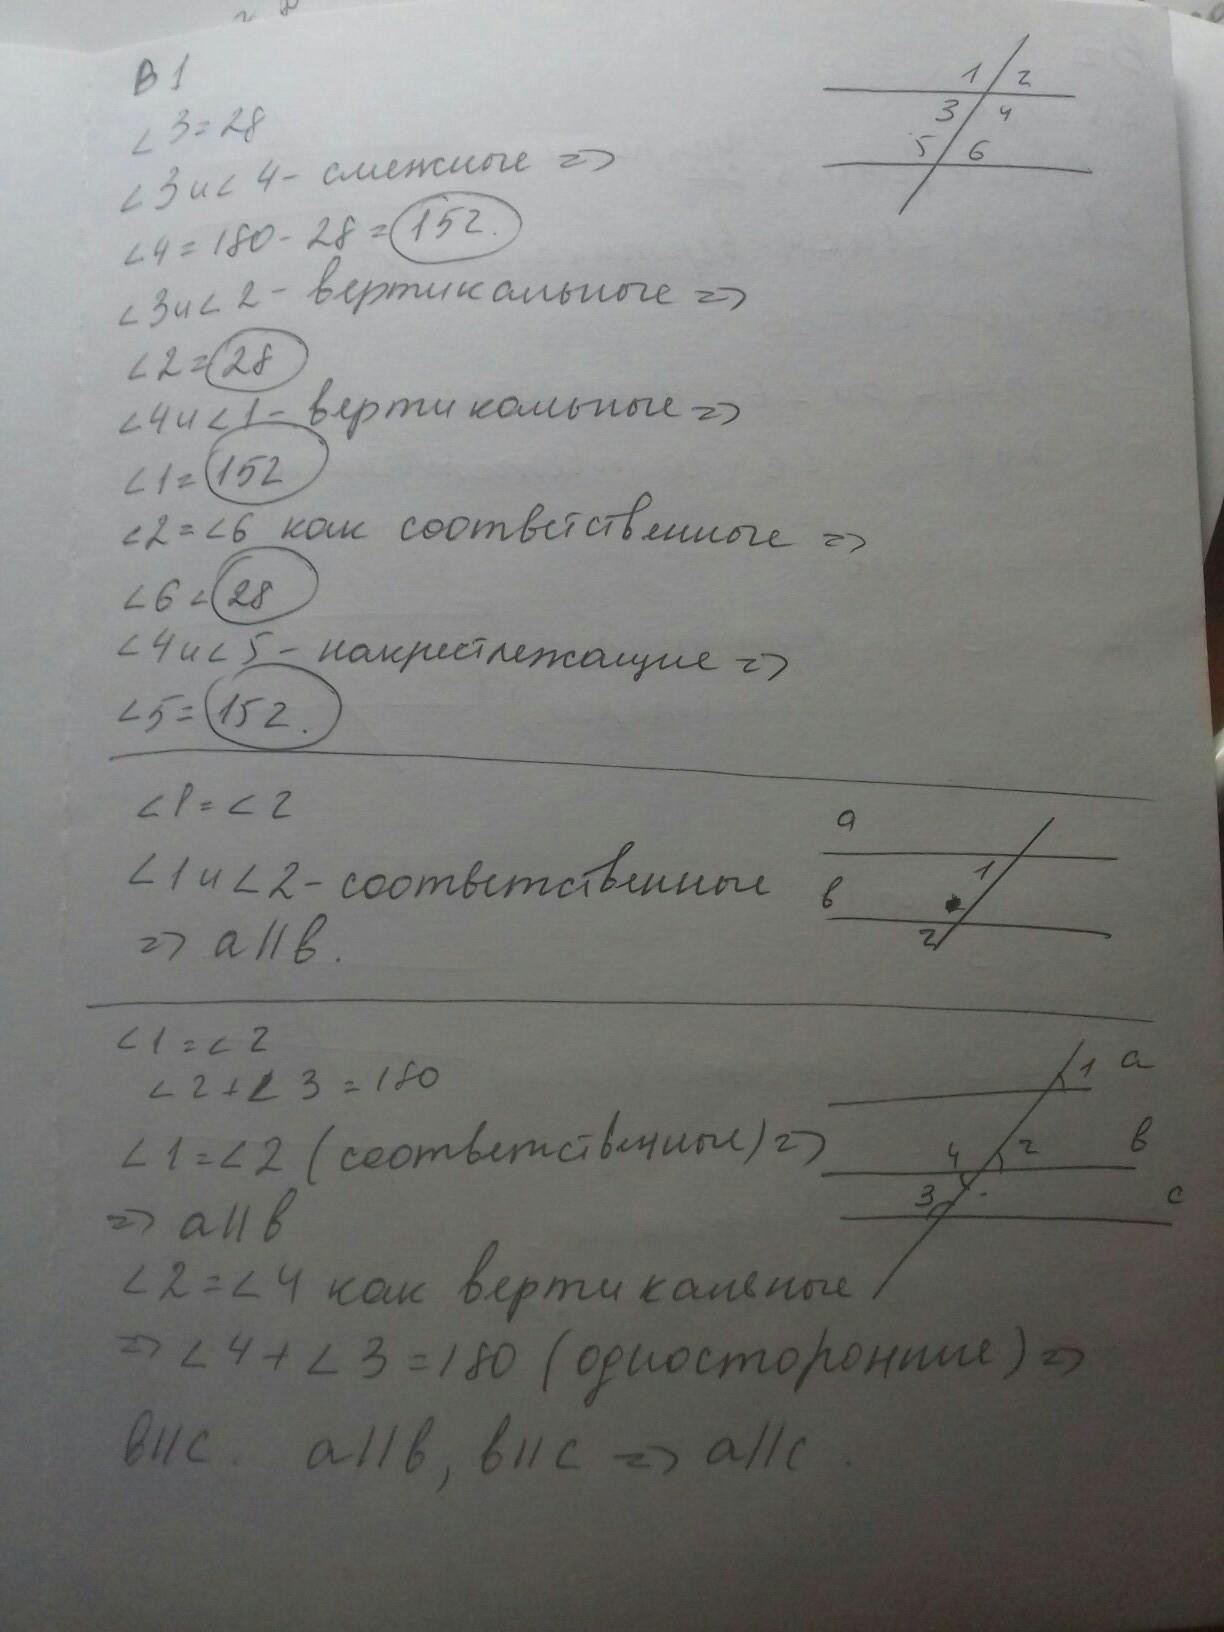 В 1
∠3=28
∠3 и ∠4 - смежные =>
∠4=180-28=152.
∠3 и ∠2 - вертикальные =>
∠2=28
∠4 и ∠1 - вертикальные =>
∠1=152
∠2=∠6 как соответственные =>
∠6 ∠ 28
∠4 и ∠5 - накрестлежащие =>
∠5=152.
1 2
3 4
5 6
∠1=∠2
∠1 и ∠2 - соответственные
=> a||в.
a
1
в
2
∠1=∠2
∠2+∠3=180
∠1=∠2 (соответственные) =>
=> a||в
∠2=∠4 как вертикальные
=> ∠4+∠3=180 (односторонние) =>
в||с. a||в, в||с => a||с.
1 a
4 2 в
3 с